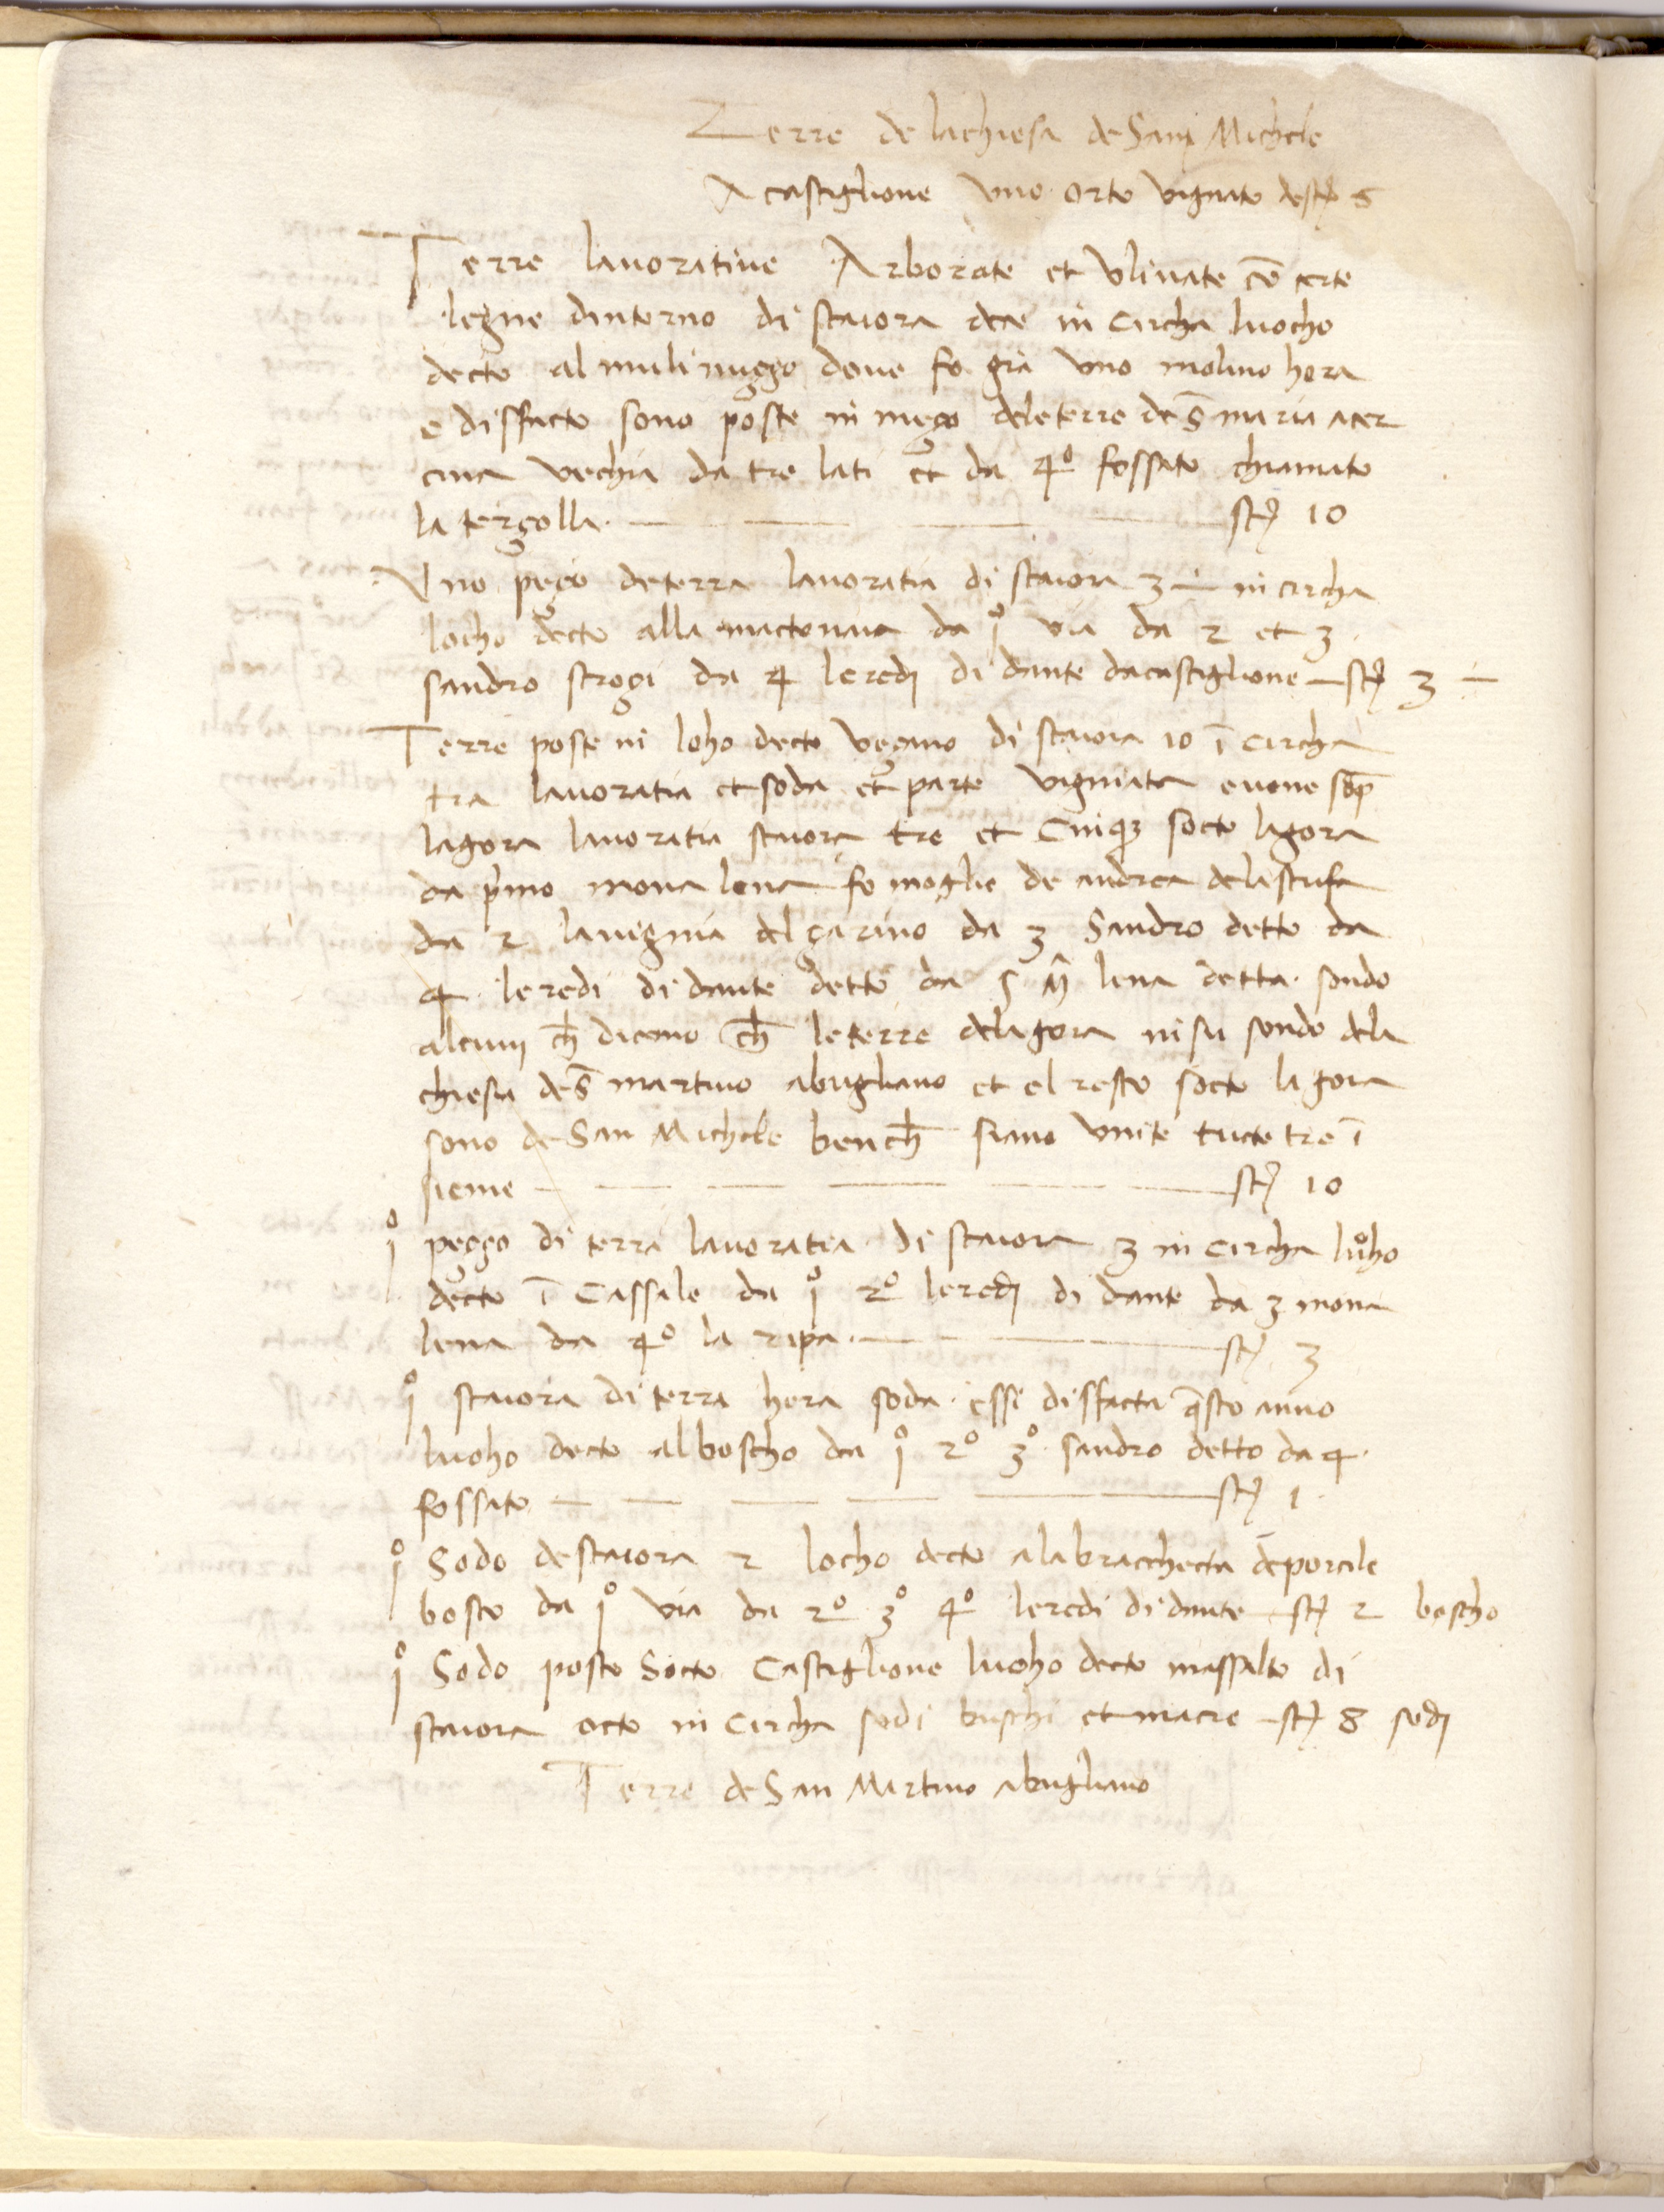 Terre de lachiesa de San Michele
A castiglione Vno orto vignato de st 5
Terre lauoratiue Arborate et Vliuate cō certe
legne dintorno di staiora dece in circha luocho
decto al mulinuzzo doue fo gia vno molino hora
e disfacto sono poste in mezo dele terre de S̄ maria a cer
cina vechia da tre lati et da 4º fossato chiamato
la terzolla st 10
Vno pezo de terra lauoratia di staiora 3 ÷ in circha
locho decto alla mactonaia da iº via da 2 et 3
sandro strozi da 4 leredi di dante dacastiglione st 3 ÷
Terre poste in loho decto vezano di staiora 10 ī circha
tra lauoratia et soda et parte vigniata euone sop̄
lagora lauoratia staiora tre et Cinq3 socto lagora
da pimo mona lena fo moglie de andrea dela stufa
da 2 lauignia del zarino da 3 Sandro detto da
4 leredi di dante detto da 5 m̄ lena detta sondo
alcuni ch̄ dicono ch̄ le terre delagora in su sondo dela
chiesa de S̄ martino abugliano et el resto socto lagora
sono de San Michele bench̄ siano vnite tucte tre ī
sieme st 10
iº pezzo di terra lauoratia di staiora 3 in circha luoho
decto ī Cassale da iº 2º leredi di dante da 3 mona
lena da 4º la ripa st 3
iº staiora di terra hora soda essi disfacta q̄sto anno
luoho decto al boscho da iº 2º 3º sandro detto da 4
fossato st 1
iº Sodo de staiora 2 locho decto ala bracchecta de porcile
bosco da iº via da 2º 3º 4º leredi di dante st 2 boscho
iº Sodo posto Socto Castiglione luoho decto massalto di
staiora octo in circha sodi buschi et macre st 8 sodi
Terre de San Martino abugliano